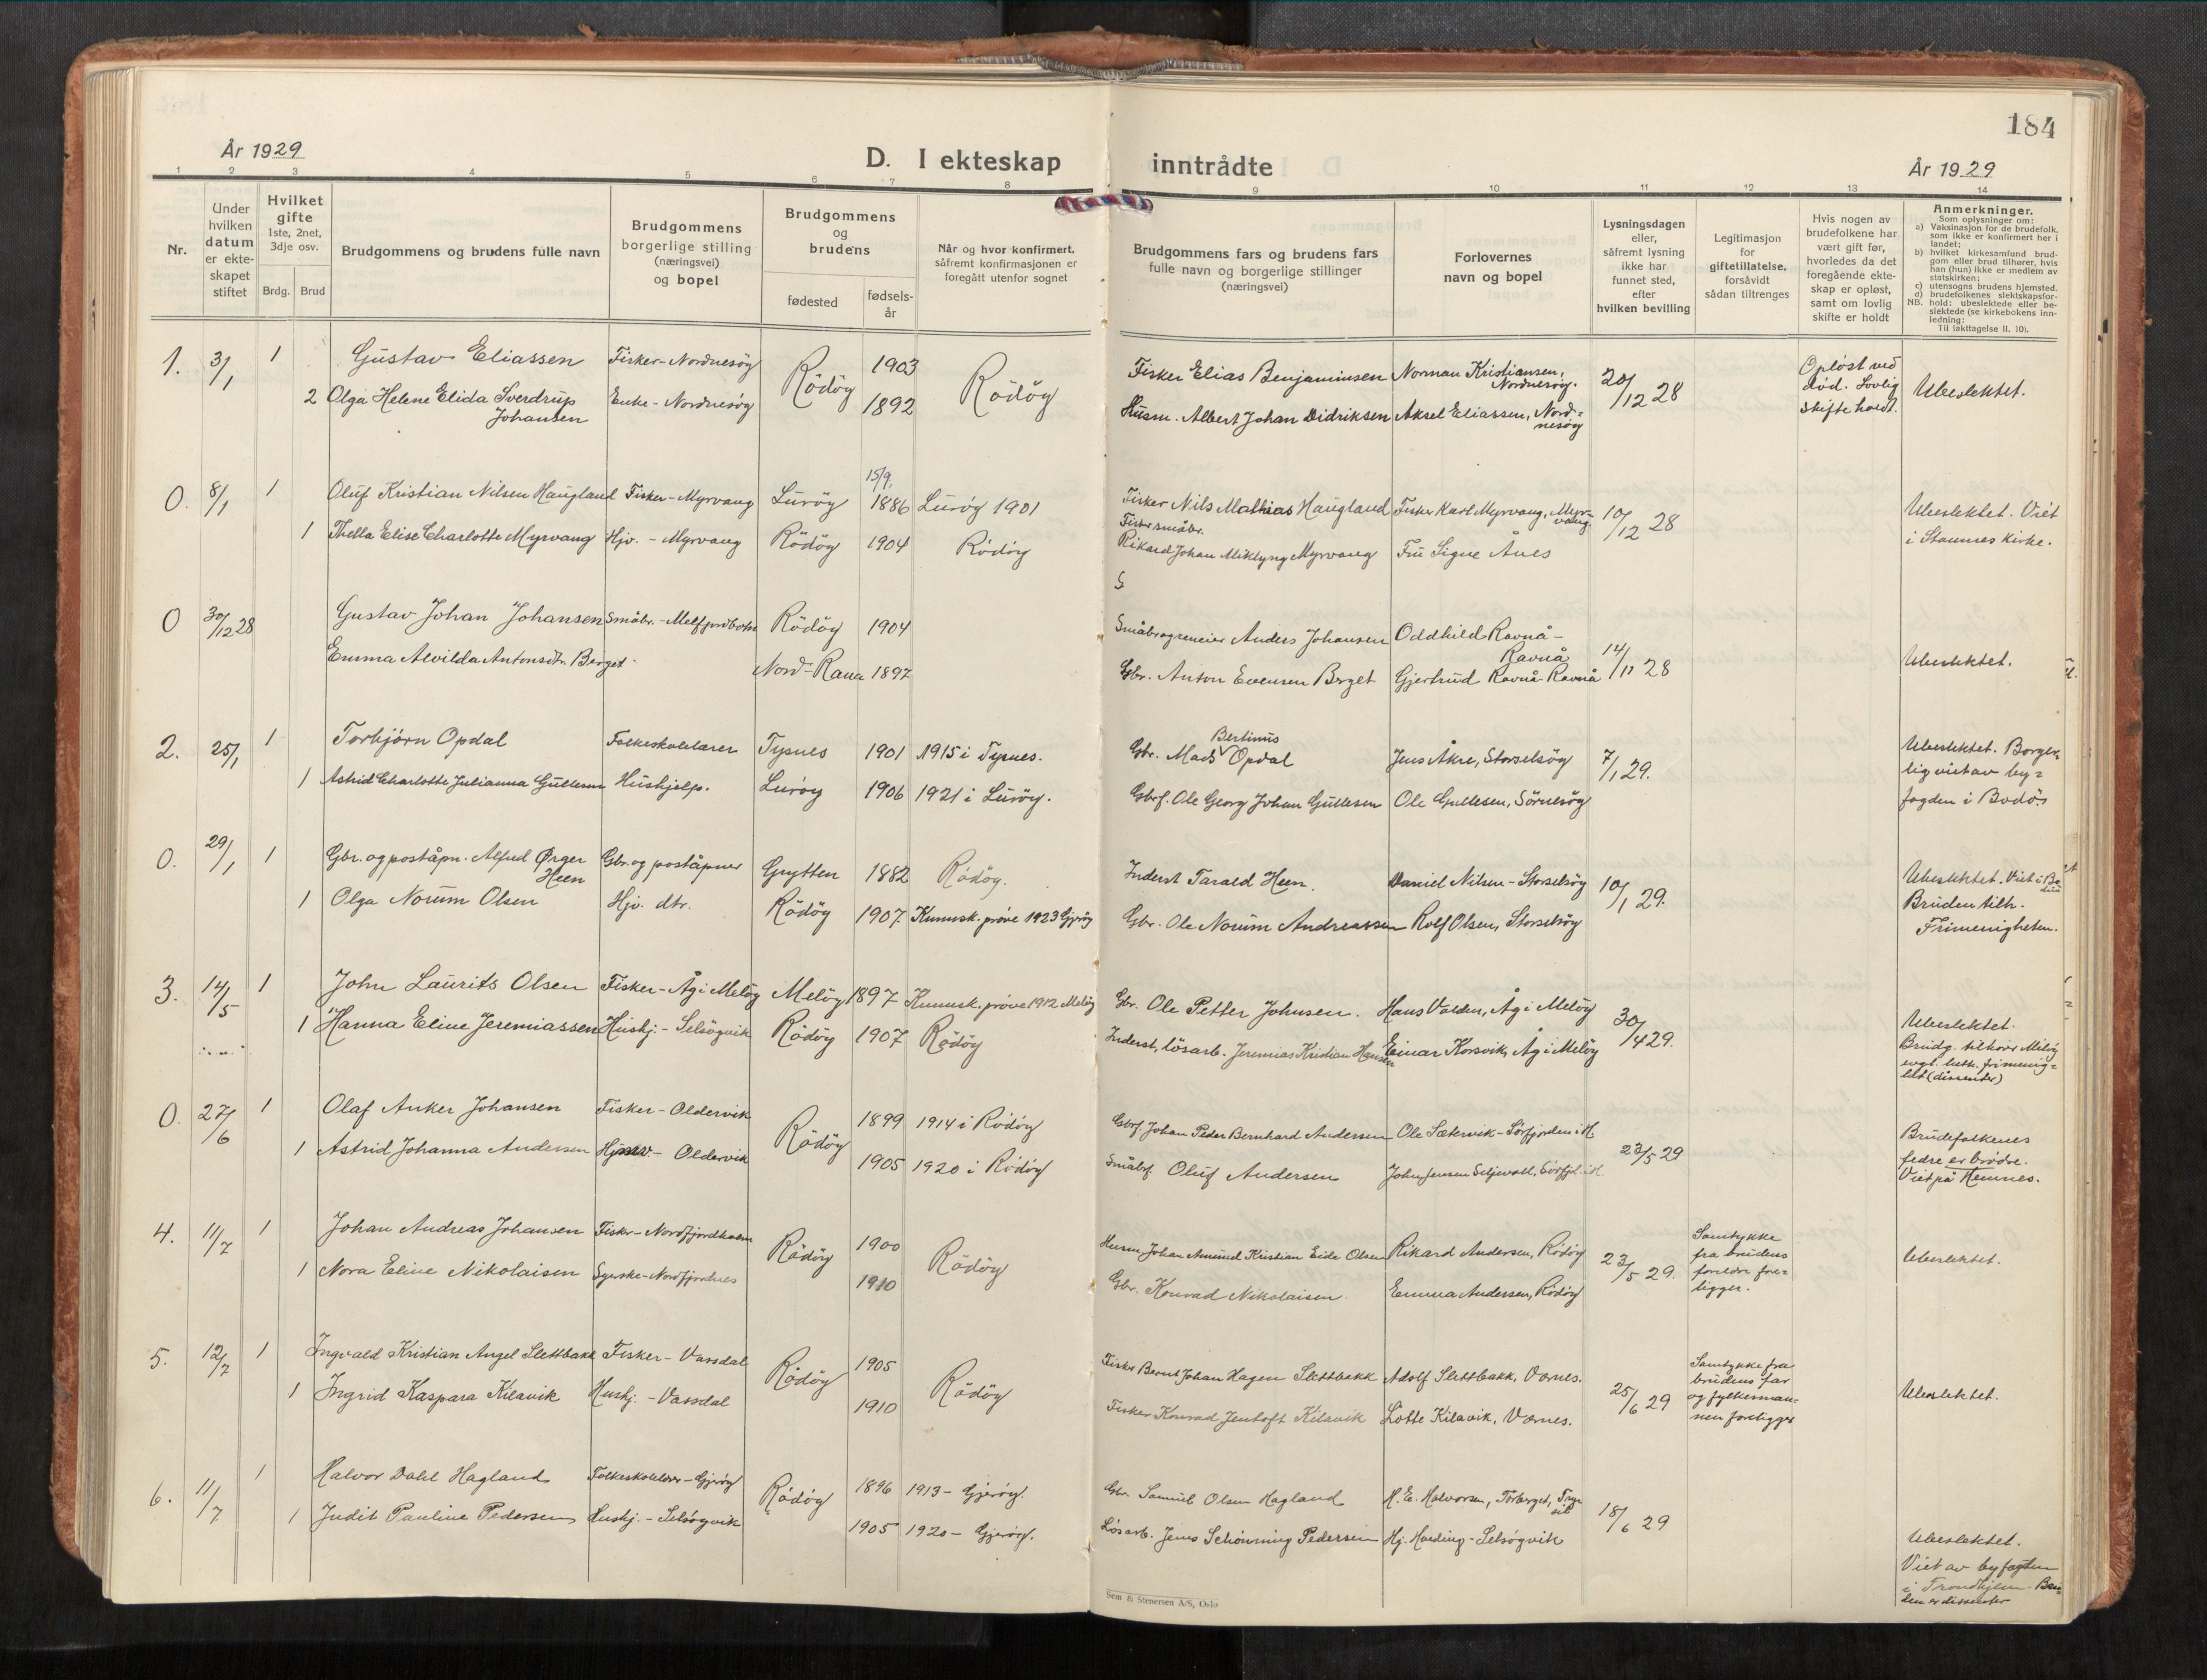 184
År 1929
D. I ekteskap inntrådte
År 1929
1 2 3 4 5 6 7 8 9 10 11 12 13 14
Nr.
Under hvilken datum er ekteskapet stiftet
Hvilket gifte 1ste, 2net, 3dje osv.
Brdg. Brud
Brudgommens og brudens fulle navn
Brudgommens borgerlige stilling (næringsvei) og bopel
Brudgommens og brudens
fødested
fødselsår
Når og hvor konfirmert. såfremt konfirmasjonen er foregått utenfor sognet
Brudgommens fars og brudens fars fulle navn og borgerlige stillinger (næringsvei)
Forlovernes navn og bopel
Lysningsdagen eller, såfremt lysning ikke har funnet sted, efter hvilken bevilling
Legitimasjon for giftetillatelse, forsåvidt sådan tiltrenges
Hvis nogen av brudefolkene har vært gift før, hvorledes da det foregående ekteskap er opløst, samt om lovlig skifte er holdt
Anmerkninger.
Som oplysninger om:
a) Vaksinasjon for de brudefolk, som ikke er konfirmert her i landet;
b) hvilket kirkesamfund brudgom eller brud tilhører, hvis han (hun) ikke er medlem av statskirken;
c) utensogns brudens hjemsted.
d) brudefolkenes slektskapsforhold: ubeslektede eller beslektede (se kirkebokens innledning:
NB.
Til iakttagelse II. 10).
1. 3/1 1 Gustav Eliassen Fisker - Nordnesöy Rödöy 1903 Rödöy Fisker Elias Benjaminsen Norman Kristiansen, Nordnesöy. 20/12 28 Opløst ved død. Lovlig skifte holdt. Ubeslektet.
2 Olga Helene Elida Sverdrup Johansen Enke - Nordnesöy 1892 Husm. Albert Johan Didriksen Aksel Eliassen, Nordnesöy
0. 8/1 1 Oluf Kristian Nilsen Haugland Fisker - Myrvang Luröy 15/9 1886 Luröy 1901 Fisker Nils Mathias Haugland Fisker Karl Myrvang, Myrvang 10/12 28 Ubeslektet. Viet i Stamnes kirke.
1 Thella Elise Charlotte Myrvang Hjv. - Myrvang Rödöy 1904 Rödöy Fisker småbr. Rikard Johan Miklyng Myrvang Fru Signe Ånes
0 30/12 28 Gustav Johan Johansen Småbr. - Melfjordbotn Rödöy 1904 Anders Johansen Oddhild Ravnå - Ravnå 14/11 28 Ubeslektet.
Emma Alvilda Antonsdtr. Berget Nord-Rana 1897 Gbr. Anton Evensen Berget Gjertrud Ravnå Ravnå
2. 25/1 1 Torbjörn Opdal Folkeskolelærer Tysnes 1901 1915 i Tysnes. Gbr. Mads Bertinus Opdal Jens Åkre, Storselsöy 7/1 29. Ubeslektet. Borgerlig viet av byfogden i Bodö.
1 Astrid Charlotte Julianna Gullesen Hushjelp. Luröy 1906 1921 i Luröy. Gbrf. Ole Georg Johan Gullesen Ole Gullesen, Sörnesöy
0. 29/1 1 Gbr. og poståpn. Alfred Ørger Heen Gbr. og poståpner Grytten 1882 Rödöy. Inderst Tarald Heen. Daniel Nilsen - Storselsöy 10/1 29. Ubeslektet. Viet i Bodin
1 Olga Norum Olsen Hjv. dtr. Rödöy 1907 Kunnsk. pröve 1923 Gjeröy Gbr. Ole Norum Andreassen Rolf Olsen, Storselsöy Bruden tilh. Frimenigheten.
3. 14/5 1 John Laurits Olsen Fisker - Åg i Melöy Melöy 1897 Kunnsk. pröve 1912 Melöy Gbr. Ole Petter Johnsen. Hans Valden, Åg i Melöy 30/4 29. Ubeslektet. Brudg. tilhörer Melöy evgl. luth. frimenighet (dissenter)
1 Hanna Eline Jeremiassen Hushj. - Selsöyvik Rödöy 1907 Rödöy Inderst, lösarb. Jeremias Kristian Hansen Einar Korsvik, Åg i Melöy
0. 27/6 1 Olaf Anker Johansen Fisker - Oldervik Rödöy 1899 1914 i Rödöy Gbrf. Johan Peder Bernhard Andersen Ole Sætervik - Sörfjorden i H. 23/5 29 Brudefolkenes fedre er brödre. Viet på Hemnes.
1 Astrid Johanna Andersen - Oldervik 1905 1920 i Rödöy Småbr. Oluf Andersen John Jensen
4. 11/7 1 Johan Andreas Johansen Fisker - Nordfjordholm Rödöy 1900 Rödöy Husm. Johan Amund Kristian Eide Olsen Rikard Andersen, Rödöy 23/5 29. Samtykke fra brudens foreldre foreligger. Ubeslektet.
1 Nora Eline Nikolaisen Syerske - Nordfjordnes 1910 Gbr. Konrad Nikolaisen Emma Andersen, Rödöy
5. 12/7 1 Ingvald Kristian Angel Slettbakk Fisker - Vassdal Rödöy 1905 Rödöy Fisker Bernt Johan Hagen Slettbakk Adolf Slettbakk, Værnes. 25/6 29 Samtykke fra brudens far og fylkesmannen foreligger Ubeslektet.
1 Ingrid Kaspara Kilavik Hushj. - Vassdal 1910 Fisker Konrad Jentoft Kilavik Lotte Kilavik, Værnes.
6. 11/7 1 Halvor Dahl Hagland Folkeskolelærer - Gjeröy Rödöy 1896 1913 - Gjeröy. Gbr. Samuel Olsen Hagland H. E. Halvorsen, Törberget, Trysil 18/6 29 Ubeslektet. Viet av byfogden i Trondhjem. Bruden er dissenter
1 Judit Pauline Pedersen Hushj. - Selsöyvik 1905 1920 - Gjeröy. Lösarb. Jens Schönning Pedersen Hj. Hareing - Selsöyvik
Sem & Stenersen A/S, Oslo